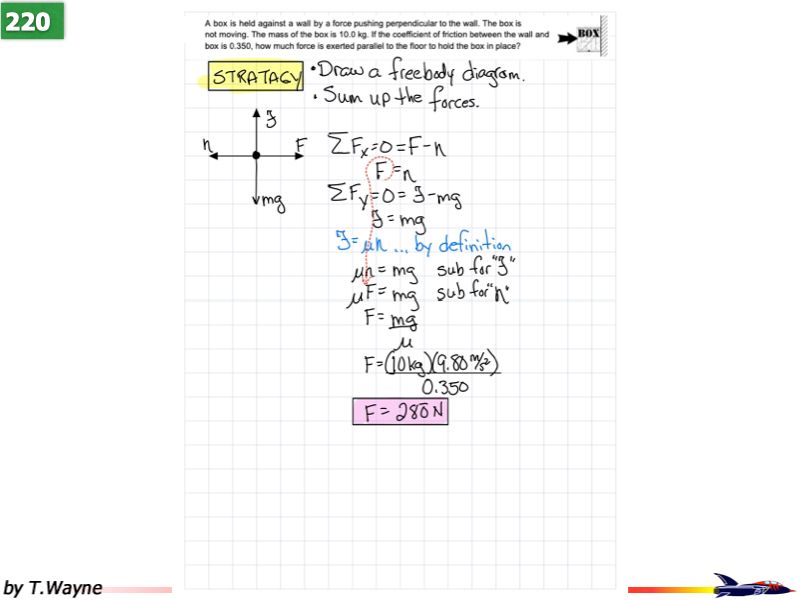 220
A box is held against a wall by a force pushing perpendicular to the wall. The box is
not moving. The mass of the box is 10.0 kg. If the coefficient of friction between the wall and
box is 0.350, how much force is exerted parallel to the floor to hold the box in place?
BOX
STRATAGY
• Draw a freebody diagram.
• Sum up the forces.
ℱ
n F
mg
ΣFx=0=F-n
F=n
ΣFy=0=ℱ-mg
ℱ=mg
ℱ=μn ... by definition
μn=mg sub for "ℱ"
μF=mg sub for "n"
F=mg
μ
F=(10kg)(9.80 m/s²)
0.350
F=280̄ N
by T.Wayne